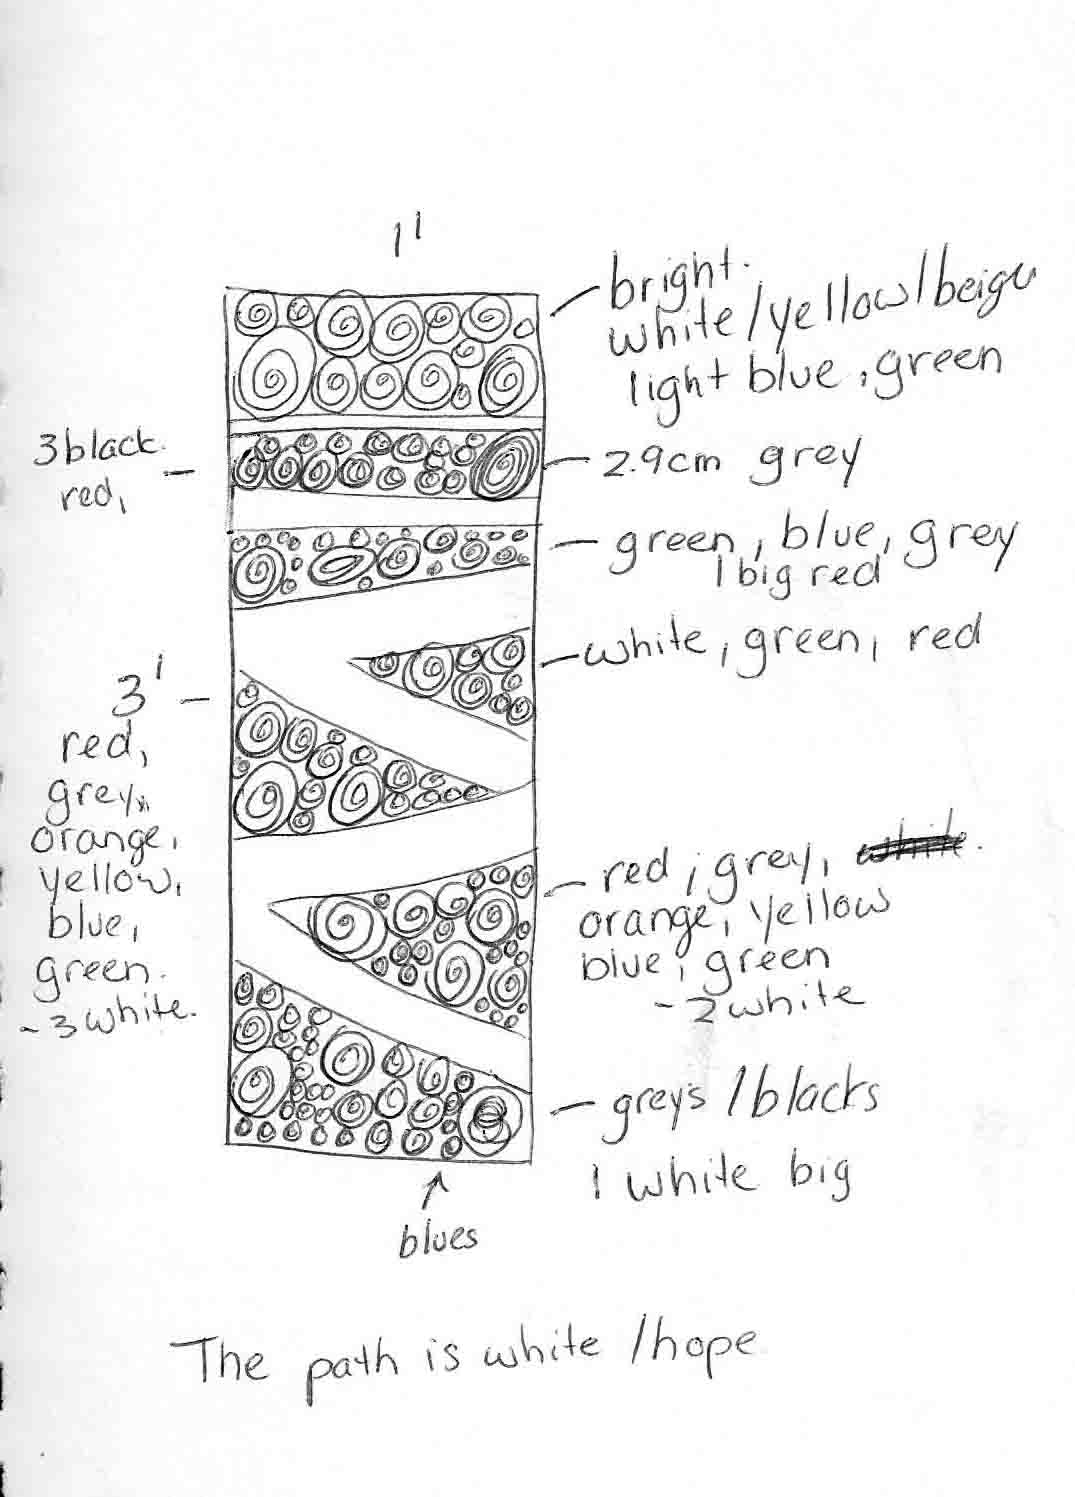 1'
bright.
white/yellow/beige
light blue, green
3 black.
red,
2.9cm grey
green, blue, grey
1 big red
white, green, red
3'
red,
grey,
orange,
yellow,
blue,
green.
- 3 white.
red, grey,
orange, yellow
blue, green
- 2 white
greys/blacks
1 white big
blues
The path is white/hope